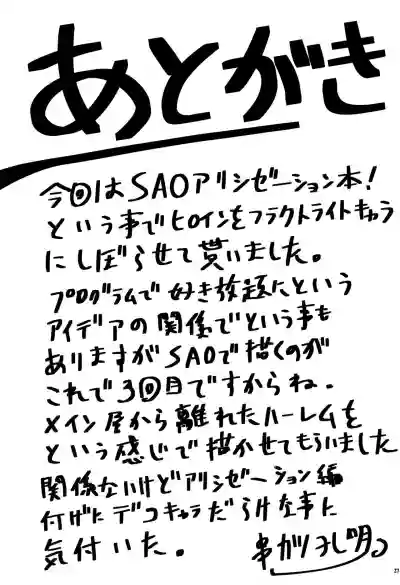 あとがき
今回はSAOアリシゼーション本!
という事でヒロインをフラクトライトキャラ
にしぼらせて貰いました。
プログラムで好き放題にという
アイデアの関係でという事も
ありますがSAOで描くのが
これで3回目ですからね。
メイン層から離れたハーレムを
という感じで描かせてもらいました
関係ないけどアリシゼーション編
付けたデコキャラだらけな事に
気付いた。